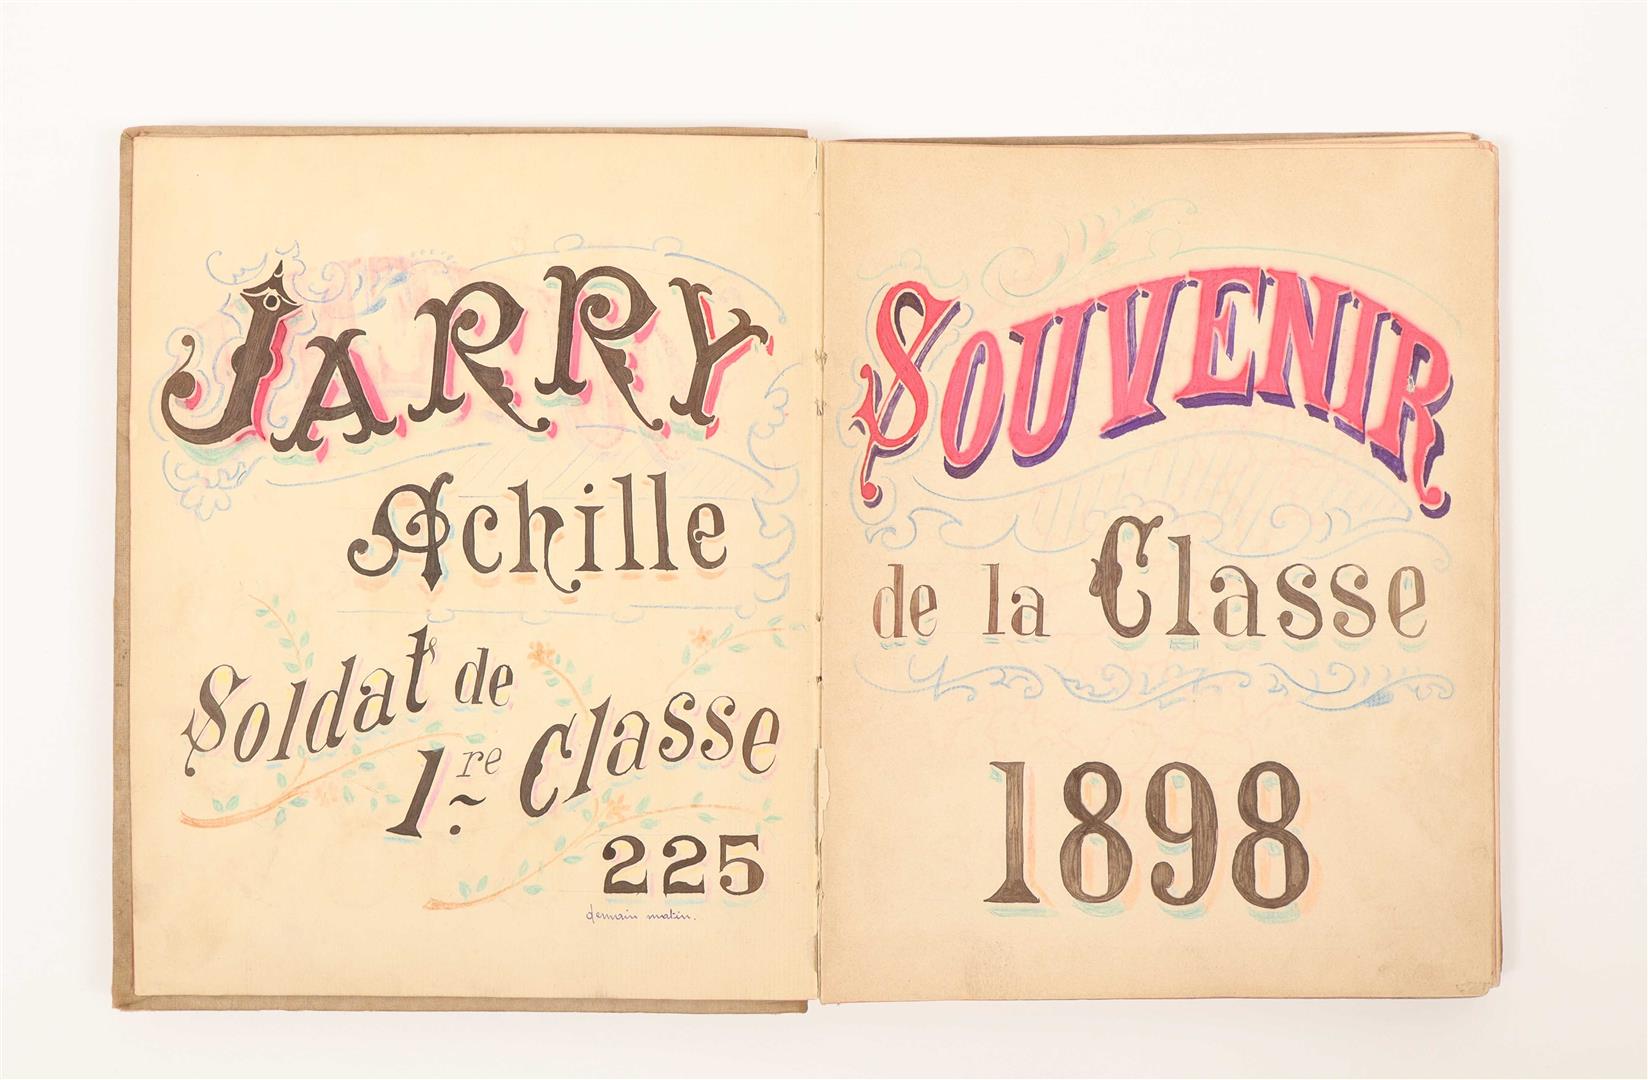 JARRY
Achille
Soldat de
1re Classe
225
demain matin.
SOUVENIR
de la Classe
1898